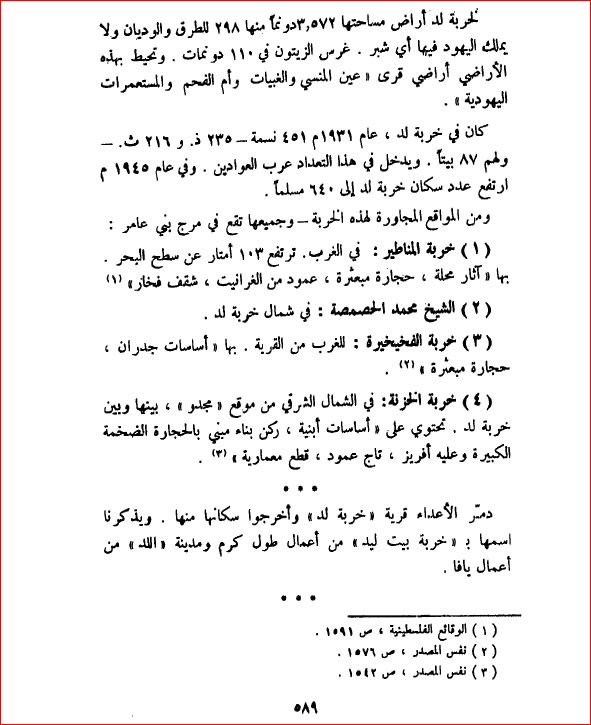 لخربة لد أراض مساحتها ٣,٥٧٢دونماً منها ٢٩٨ للطرق والوديان ولا
يملك اليهود فيها أي شبر . غرس الزيتون في ١١٠ دونمات . وتحيط بهذه
الأراضي أراضي قرى « عين المنسي والغبيات وأم الفحم والمستعمرات
اليهودية » .
كان في خربة لد ، عام ١٩٣١م ٤٥١ نسمة – ٢٣٥ ذ. و ٢١٦ ث. –
ولهم ٨٧ بيتاً . ويدخل في هذا التعداد عرب العوادين . وفي عام ١٩٤٥ م
ارتفع عدد سكان خربة لد إلى ٦٤٠ مسلماً .
ومن المواقع المجاورة لهذه الخربة – وجميعها تقع في مرج بني عامر :
( ١ ) خربة المناطير : في الغرب. ترتفع ١٠٣ أمتار عن سطح البحر .
بها « آثار محلة ، حجارة مبعثرة ، عمود من الغرانيت ، شقف فخار » (١)
( ٢ ) الشيخ محمد الحصمصة : في شمال خربة لد .
( ٣ ) خربة الفخيخيرة : للغرب من القرية . بها « أساسات جدران ،
حجارة مبعثرة » (٢) .
( ٤ ) خربة الخزنة: في الشمال الشرقي من موقع « مجدو » ، بينها وبين
خربة لد . تحتوي على « أساسات أبنية ، ركن بناء مبني بالحجارة الضخمة
الكبيرة وعليه أفريز ، تاج عمود ، قطع معمارية » (٣) .
* * *
دمّر الأعداء قرية « خربة لد » وأخرجوا سكانها منها . ويذكرنا
اسمها بـ « خربة بيت ليد » من أعمال طول كرم ومدينة « اللد » من
أعمال يافا .
* * *
( ١ ) الوقائع الفلسطينية ، ص ١٥٩١ .
( ٢ ) نفس المصدر ، ص ١٥٧٦ .
( ٣ ) نفس المصدر ، ص ١٥٤٢ .
٥٨٩